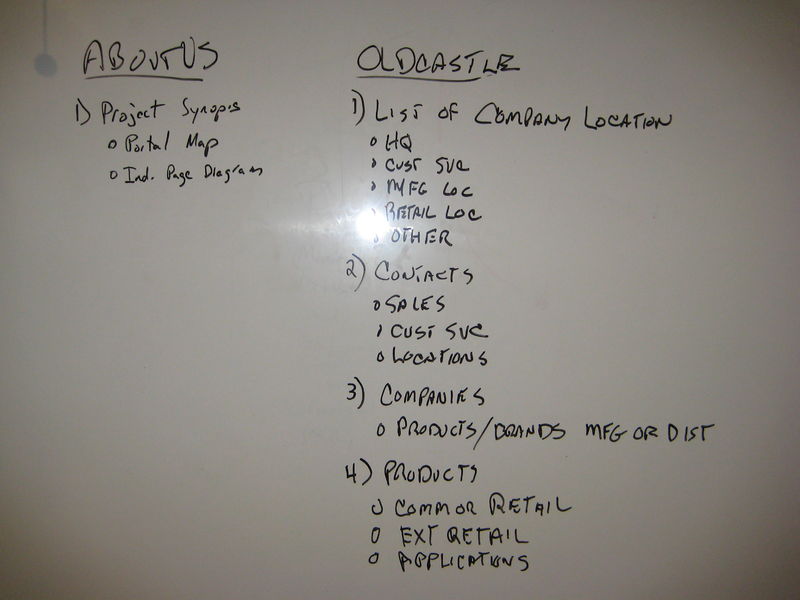 ABOUT US
1) Project Synopsis
o Portal Map
o Ind. Page Diagrams
OLDCASTLE
1) LIST OF COMPANY LOCATION
o HQ
o CUST SVC
o MFG LOC
o RETAIL LOC
o OTHER
2) CONTACTS
o SALES
o CUST SVC
o LOCATIONS
3) COMPANIES
o PRODUCTS/BRANDS MFG OR DIST
4) PRODUCTS
o COMM OR RETAIL
o EXT RETAIL
o APPLICATIONS